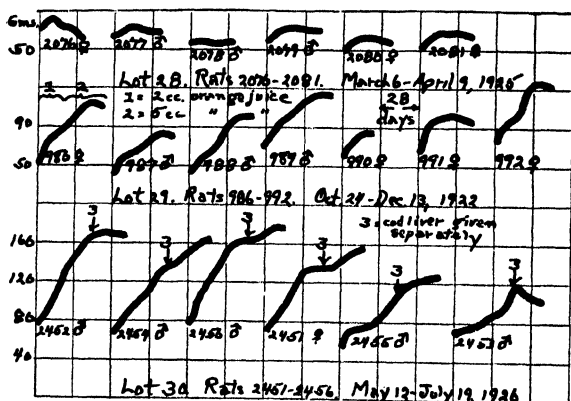 Gms.
50
2076♀ 2077♂ 2078♂ 2079♂ 2080♀ 2081♀
Lot 28. Rats 2076-2081. March 6-April 9, 1925
1 2
1= 2cc. orange juice
2= 5cc " "
28
days
90
50
986♀ 987♂ 988♂ 989♂ 990♀ 991♀ 992♀
Lot 29. Rats 986-992. Oct 24-Dec. 13, 1922
3. cod liver given
separately
3 3 3 3 3 3
160
120
80
2452♂ 2454♂ 2456♂ 2451♀ 2455♂ 2453♂
40
Lot 30. Rats 2451-2456. May 12-July 19, 1926